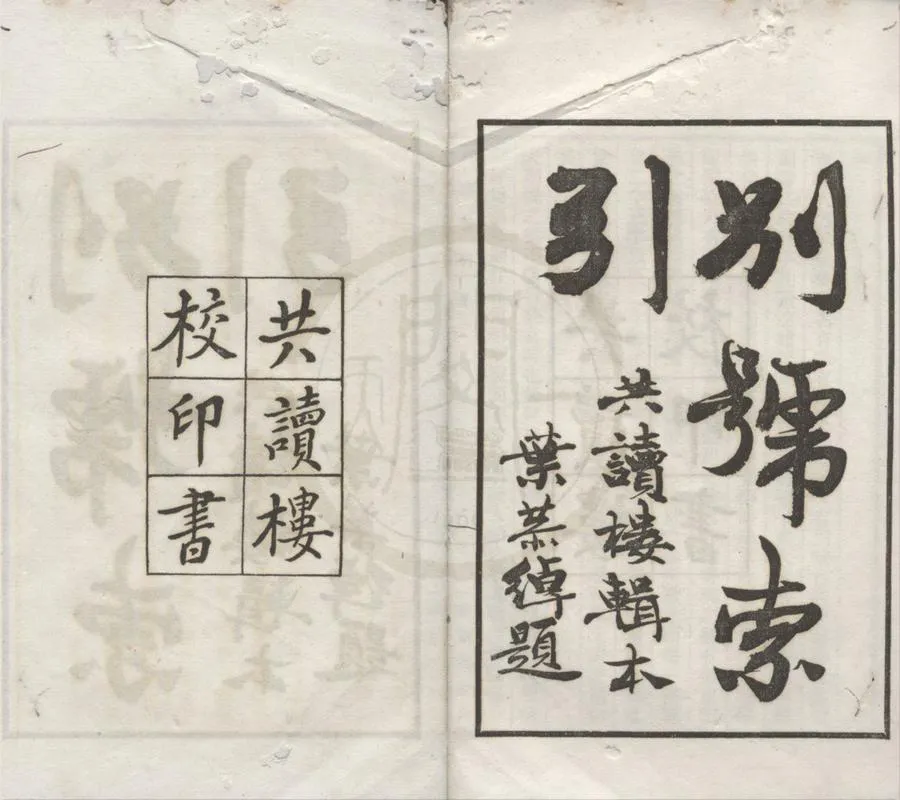 別號索
引
共讀樓輯本
葉恭綽題
共讀樓
校印書